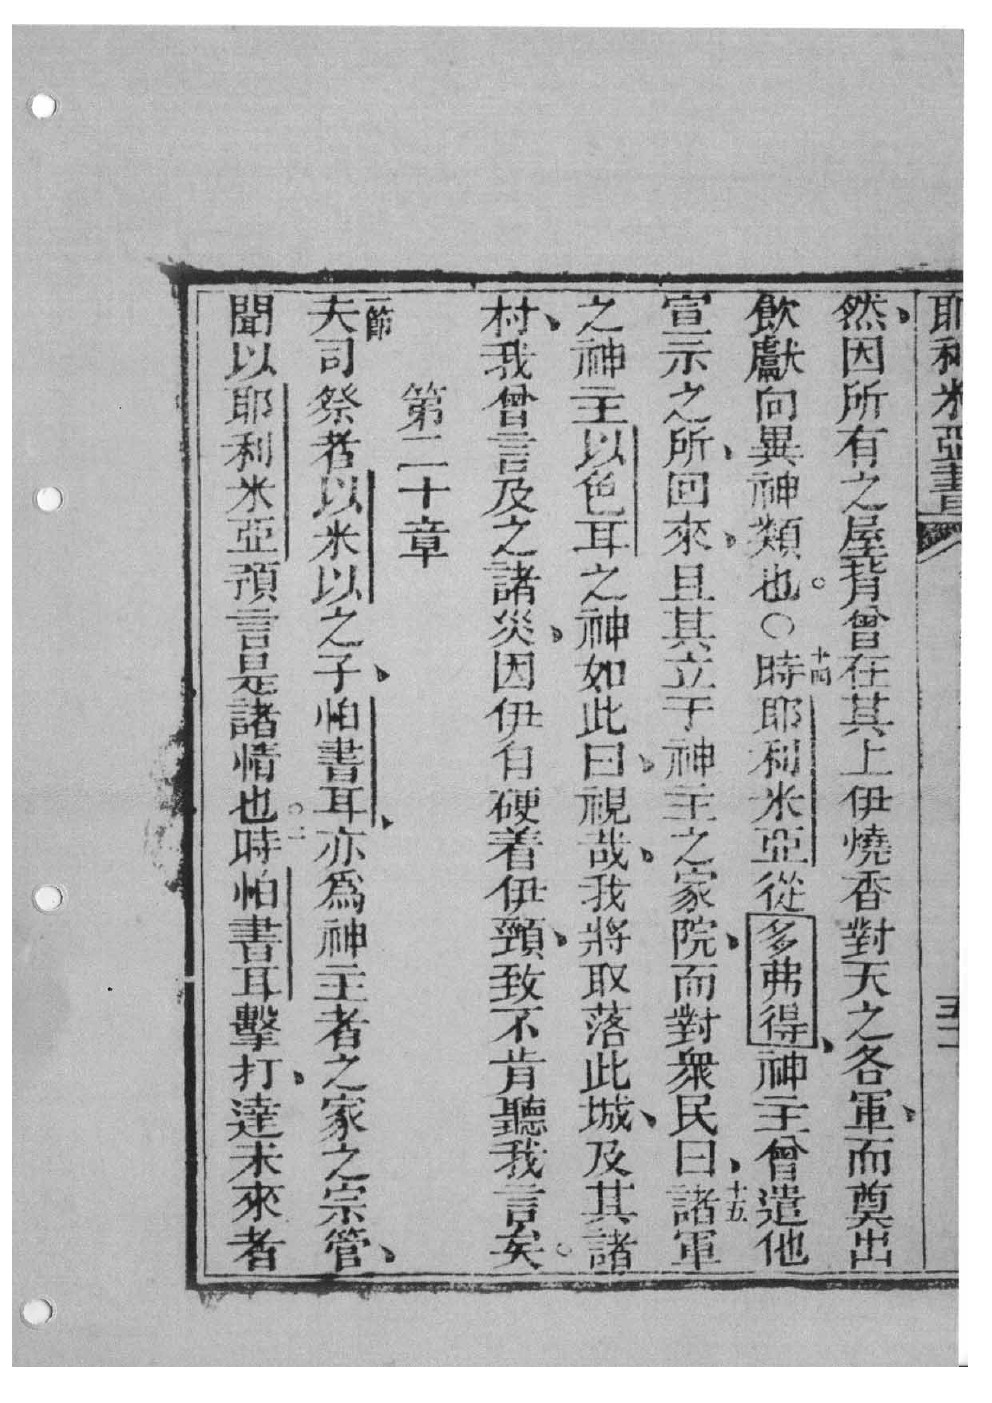 耶利米亞書 五十一
然、因所有之屋背曾在其上伊燒香對天之各軍、而奠出
飲獻向異神類也。○十四時耶利米亞從多弗得、神主曾遣他
宣示之所、回來、且其立于神主之家院、而對衆民曰、十五諸軍
之神主以色耳之神如此曰、視哉、我將取落此城、及其諸
村、我曾言及之諸災、因伊自硬着伊頸、致不肯聽我言矣。
第二十章
一節夫司祭者以米以之子、怕書耳、亦爲神主者之家之宗管、
聞以耶利米亞預言是諸情也。二時怕書耳擊打、達未來者